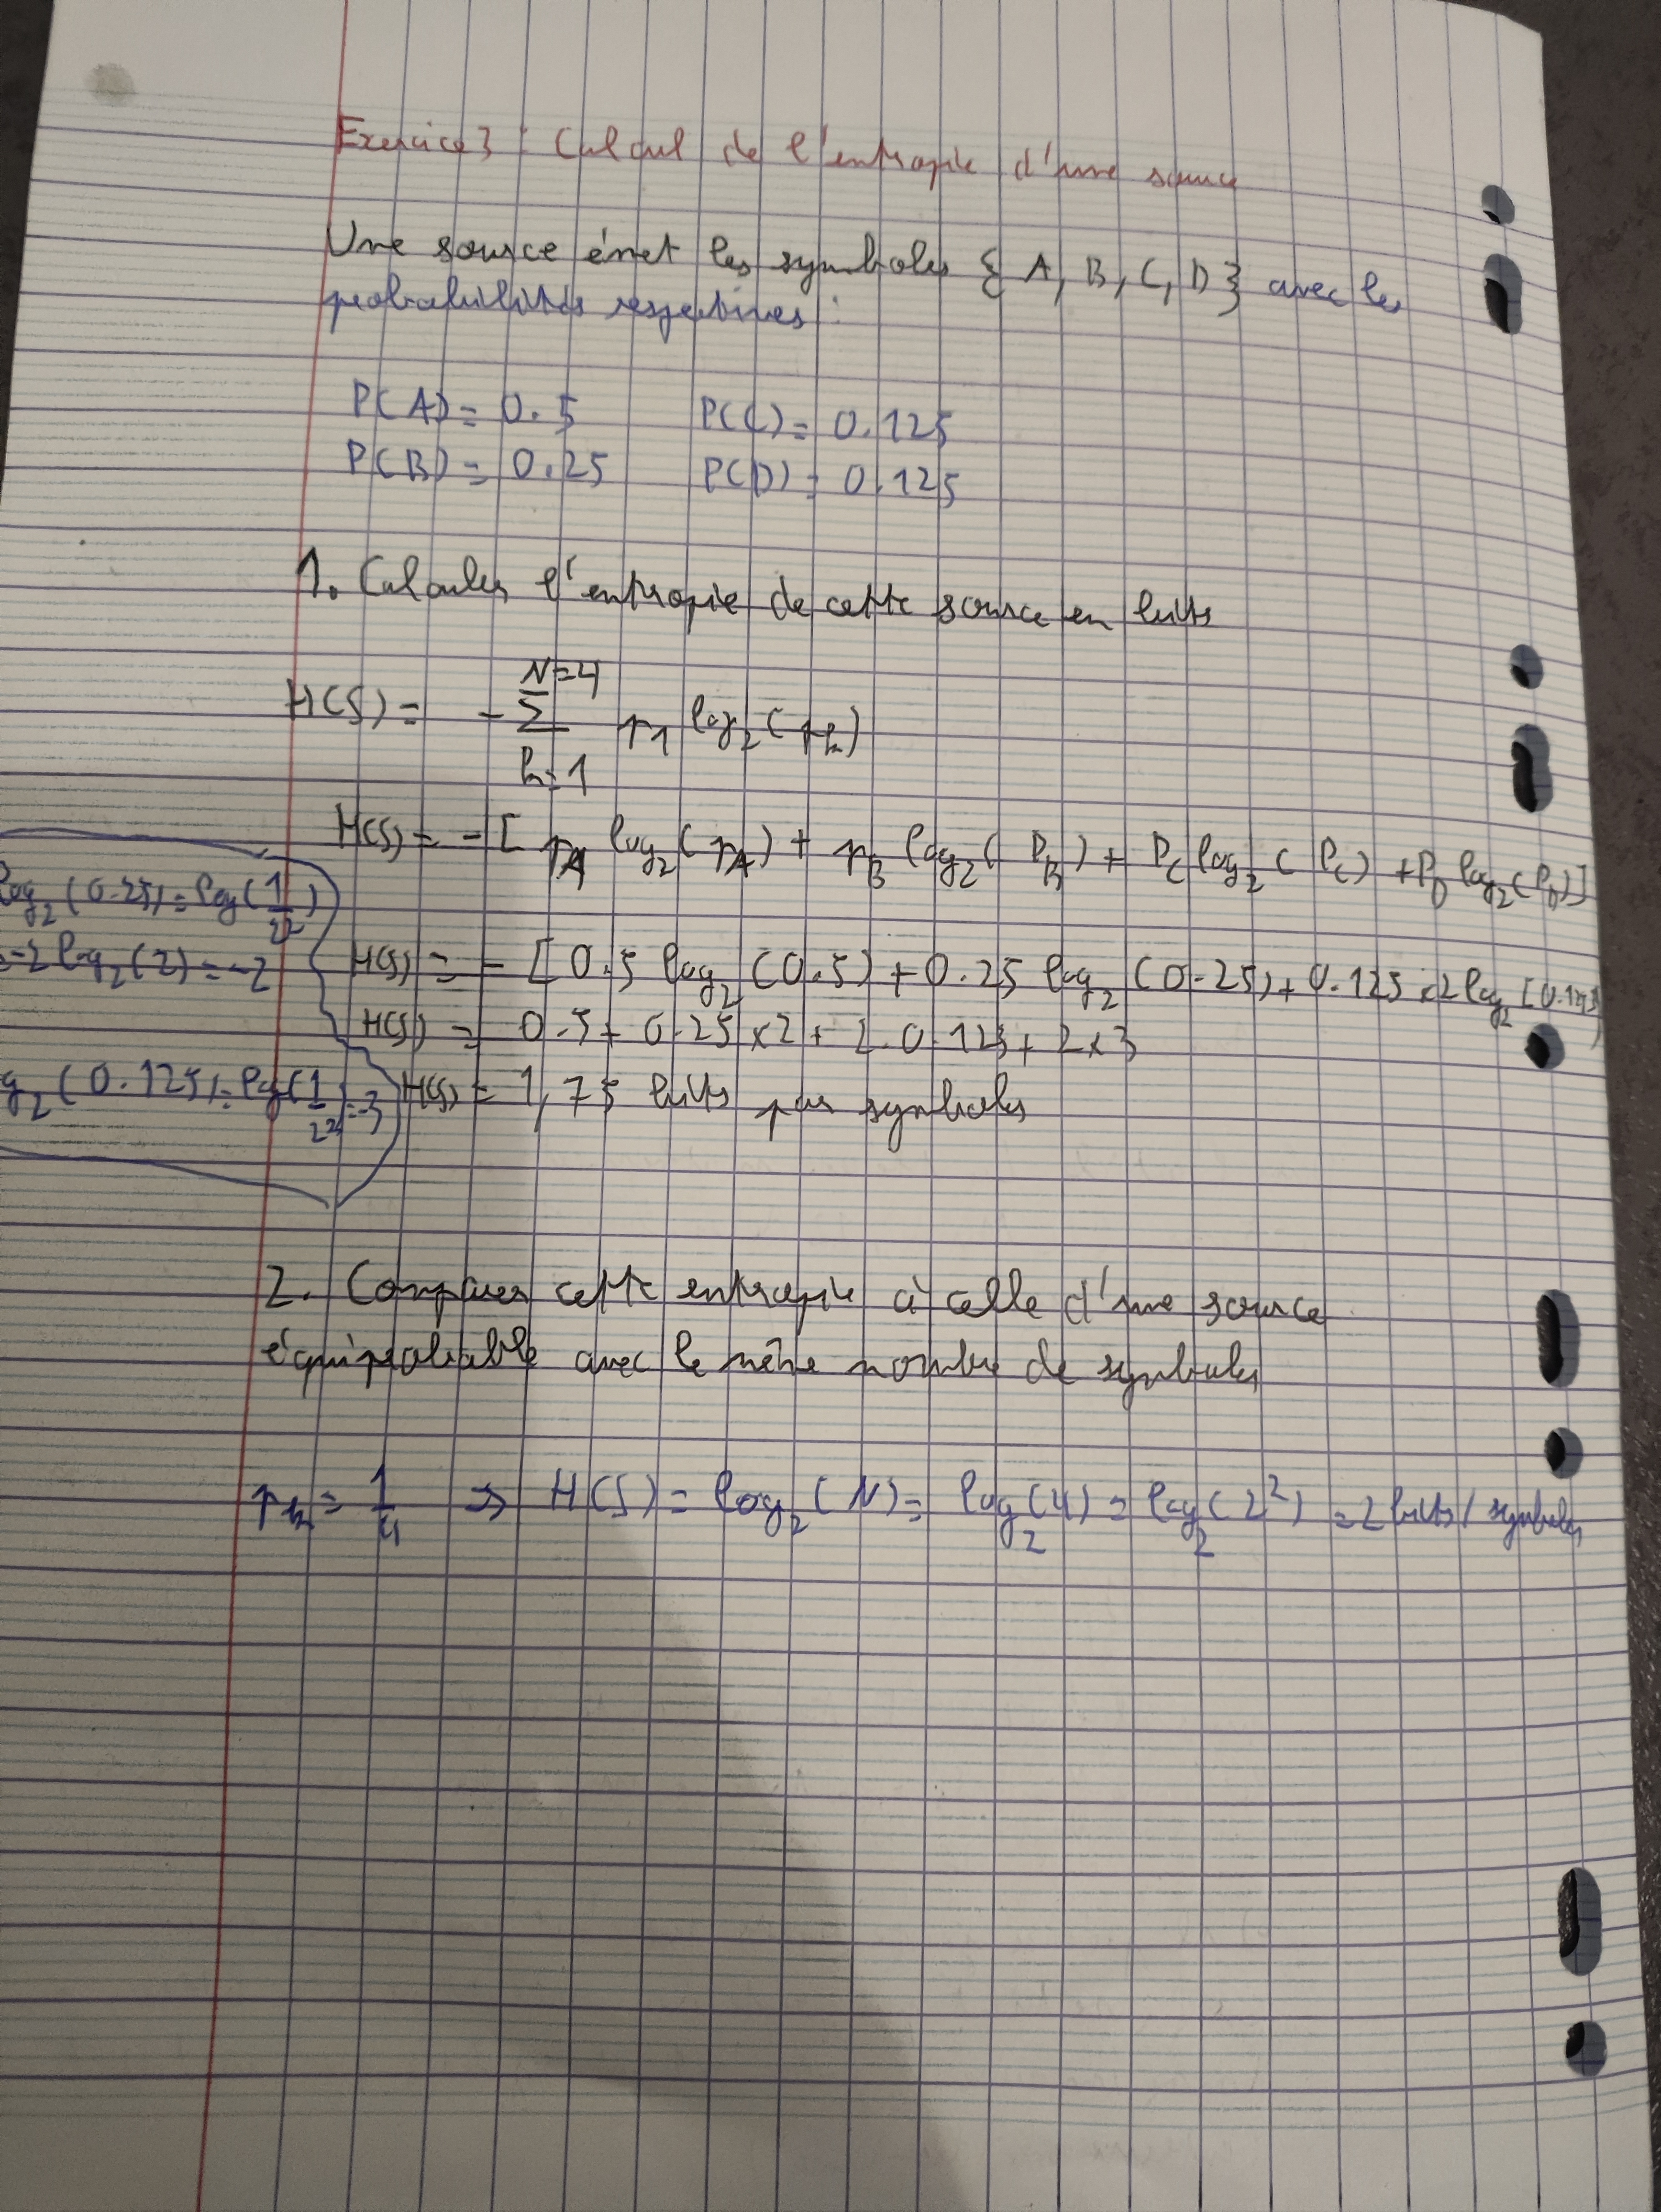 Exercice 3 : Calcul de l'entropie d'une source
Une source émet les symboles { A, B, C, D } avec les
probabilités respectives :
P(A) = 0.5 P(C) = 0.125
P(B) = 0.25 P(D) = 0.125
1. Calculer l'entropie de cette source en bits
N=4
H(S) = - Σ p1 log2(pk)
k=1
H(S) = - [ pA log2(pA) + pB log2(PB) + PC log2(PC) + PD log2(PD)]
log2(0.25) = log(1/2²)
= -2 log2(2) = -2
H(S) = - [0.5 log2(0.5) + 0.25 log2(0.25) + 0.125 x 2 log2(0.125)
H(S) = 0.5 + 0.25 x 2 + 2. 0.125 + 2x3
g2(0.125) = log(1/2³) = -3
H(S) = 1,75 bits par symboles
2. Comparer cette entropie à celle d'une source
équiprobable avec le même nombre de symboles
pk = 1/4 => H(S) = log2(N) = log2(4) = log2(2²) = 2 bits / symboles